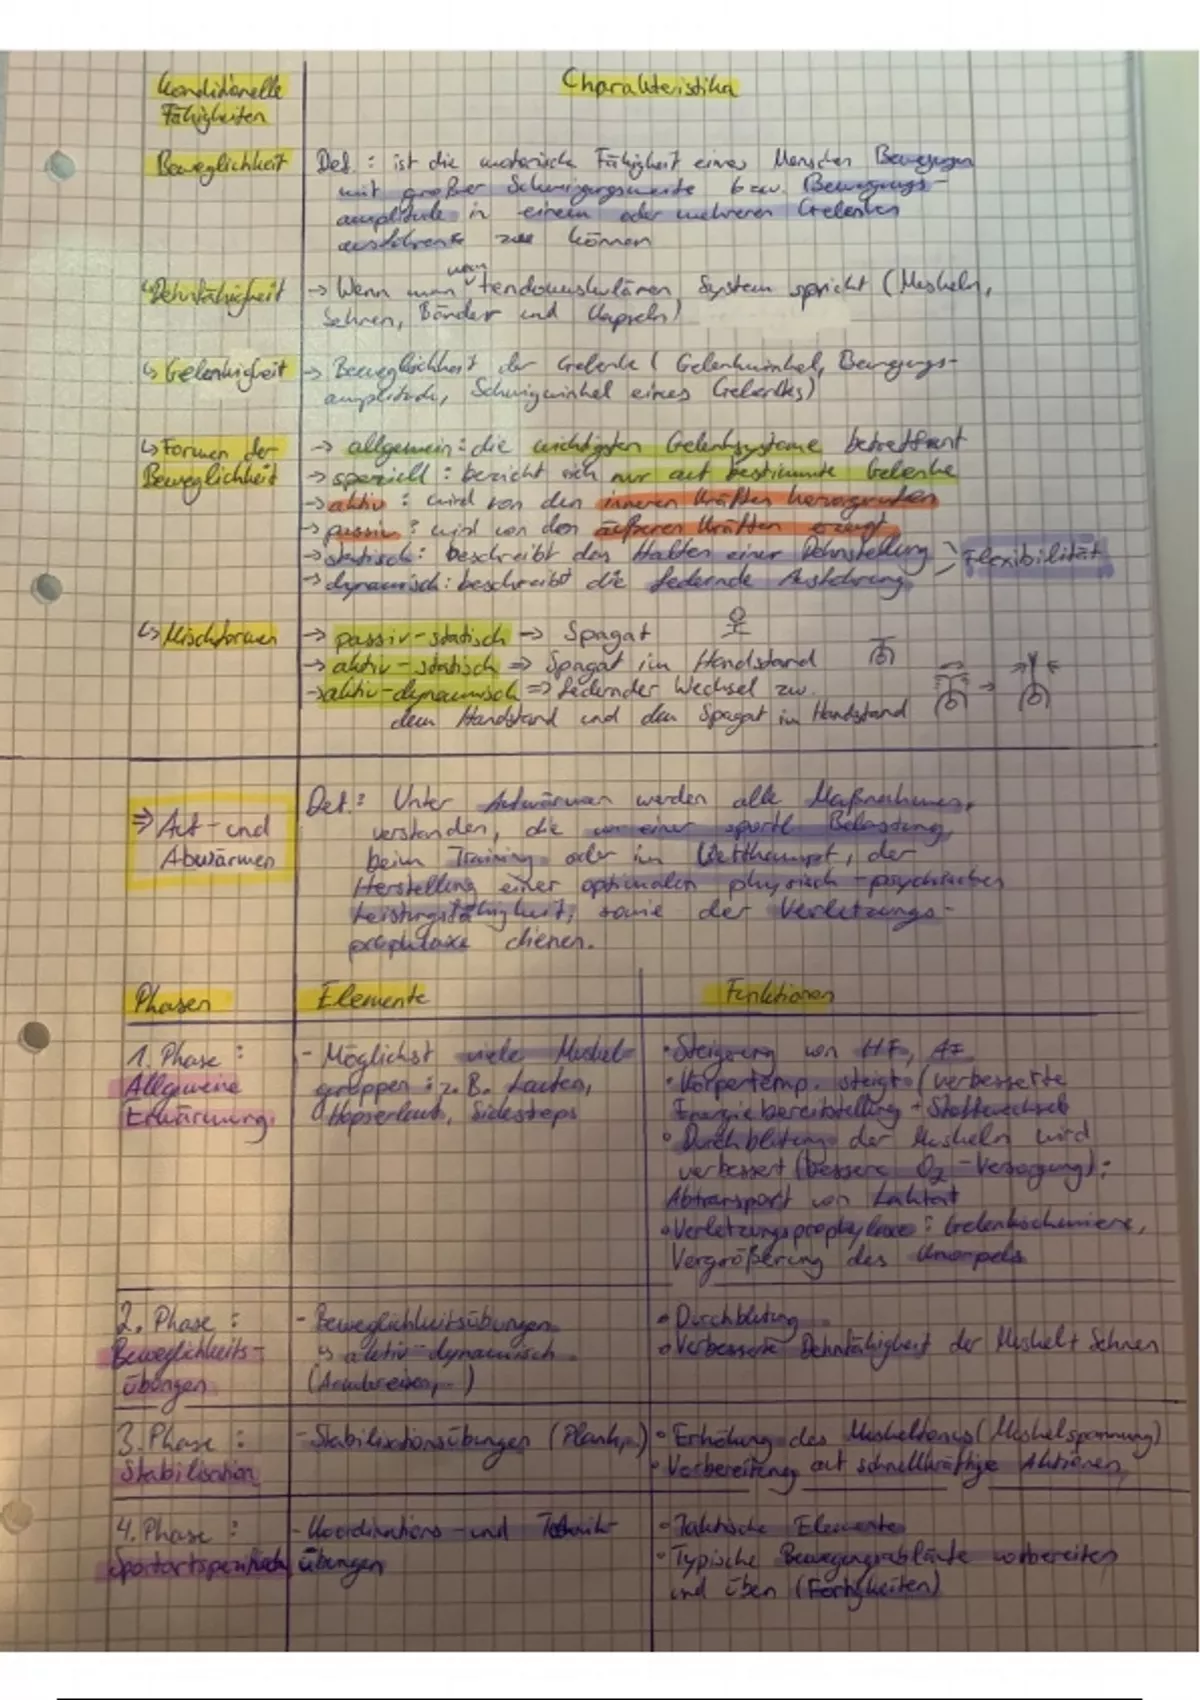 Konditionelle
Fähigkeiten
Charakteristika
Beweglichkeit
Def.: ist die motorische Fähigkeit eines Menschen Bewegungen
mit großer Schwingungsweite bzw. Bewegungs-
amplitude in einem oder mehreren Gelenken
ausführen zu können
↳ Dehnfähigkeit
→ Wenn man vom tendomuskulären System spricht (Muskeln,
Sehnen, Bänder und Kapseln)
↳ Gelenkigkeit
→ Beweglichkeit der Gelenke (Gelenkwinkel, Bewegungs-
amplitude, Schwingwinkel eines Gelenkes)
↳ Formen der
Beweglichkeit
→ allgemein: die wichtigsten Gelenksysteme betreffent
→ speziell: bezieht sich nur auf bestimmte Gelenke
→ aktiv: wird von den inneren Kräften hervorgerufen
→ passiv: wird von den äußeren Kräften erzeugt
→ statisch: beschreibt das Halten einer Dehnstellung
→ dynamisch: beschreibt die federnde Ausführung
Flexibilität
↳ Mischformen
→ passiv-statisch → Spagat
→ aktiv-statisch → Spagat im Handstand
→ aktiv-dynamisch → federnder Wechsel zw.
dem Handstand und den Spagat im Handstand
⇒ Auf- und
Abwärmen
Def.: Unter Aufwärmen werden alle Maßnahmen,
verstanden, die vor einer sportl. Belastung,
beim Training oder im Wettkampf, der
Herstellung einer optimalen physisch-psychischen
Leistungsfähigkeit, sowie der Verletzungs-
prophylaxe dienen.
Phasen
Elemente
Funktionen
1. Phase:
Allgemeine
Erwärmung
- Möglichst viele Muskel-
gruppen: z.B. Laufen,
Hopserlauf, Sidesteps
• Steigerung von HF, AF
• Körpertemp. steigt (verbesserte
Energiebereitstellung + Stoffwechsel
• Durchblutung der Muskeln wird
verbessert (bessere O₂-Versorgung);
Abtransport von Laktat
• Verletzungsprophylaxe: Gelenkschmiere,
Vergrößerung des Knorpels
2. Phase:
Beweglichkeits-
übungen
- Beweglichkeitsübungen
↳ aktiv-dynamisch
(Armkreisen,..)
• Durchblutung
• Verbesserte Dehnfähigkeit der Muskel+Sehnen
3. Phase:
Stabilisation
- Stabilisationsübungen (Plank,..)
• Erhöhung des Muskeltonus (Muskelspannung)
• Vorbereitung auf schnellkräftige Aktionen
4. Phase:
Sportartspezifisch
- Koordinations- und Technik-
übungen
• Taktische Elemente
• Typische Bewegungsabläufe vorbereiten
und üben (Fertigkeiten)